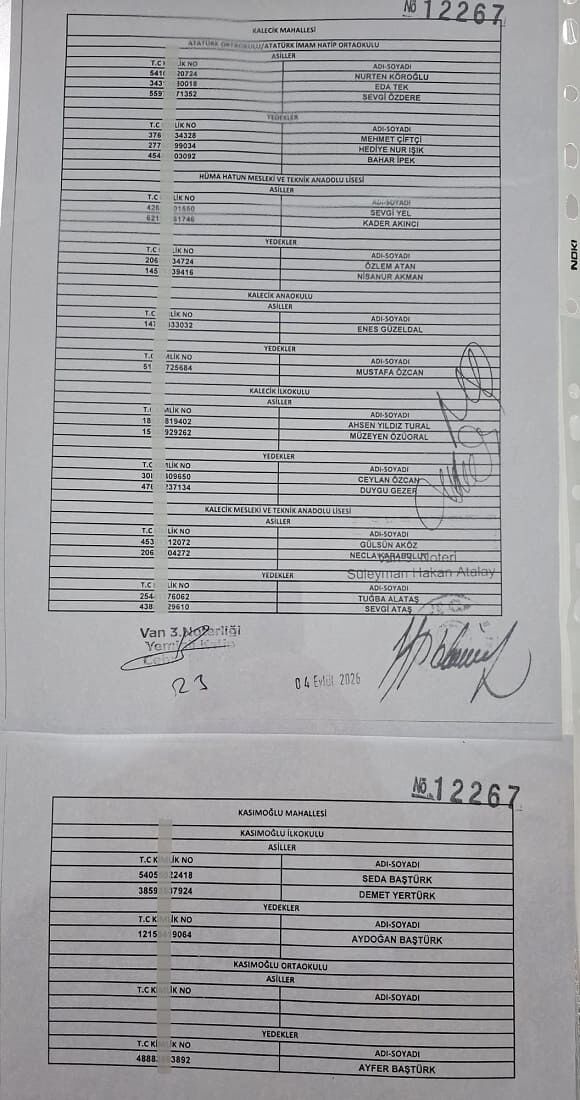 № 12267
KALECİK MAHALLESİ
ATATÜRK ORTAOKULU/ATATÜRK İMAM HATİP ORTAOKULU
ASİLLER
T.C LİK NO ADI-SOYADI
5410 20724 NURTEN KÖROĞLU
343 80018 EDA TEK
559 71352 SEVGİ ÖZDERE
YEDEKLER
T.C LİK NO ADI-SOYADI
376 34328 MEHMET ÇİFTÇİ
277 99034 HEDİYE NUR IŞIK
454 03092 BAHAR İPEK
HÜMA HATUN MESLEKİ VE TEKNİK ANADOLU LİSESİ
ASİLLER
T.C LİK NO ADI-SOYADI
426 01660 SEVGİ YEL
621 81746 KADER AKINCI
YEDEKLER
T.C LİK NO ADI-SOYADI
206 34724 ÖZLEM ATAN
145 39416 NİSANUR AKMAN
KALECİK ANAOKULU
ASİLLER
T.C LİK NO ADI-SOYADI
147 333032 ENES GÜZELDAL
YEDEKLER
T.C MLİK NO ADI-SOYADI
51 725684 MUSTAFA ÖZCAN
KALECİK İLKOKULU
ASİLLER
T.C MLİK NO ADI-SOYADI
18 819402 AHSEN YILDIZ TURAL
15 929262 MÜZEYEN ÖZÜORAL
YEDEKLER
T.C MLİK NO ADI-SOYADI
308 409650 CEYLAN ÖZCAN
476 237134 DUYGU GEZER
KALECİK MESLEKİ VE TEKNİK ANADOLU LİSESİ
ASİLLER
T.C LİK NO ADI-SOYADI
453 12072 GÜLSÜN AKÖZ
206 04272 NECLA KARABULUT
Noteri
Süleyman Hakan Atalay
YEDEKLER
T.C LİK NO ADI-SOYADI
254 76062 TUĞBA ALATAŞ
438 29610 SEVGİ ATAŞ
Van 3.Noterliği
Yeminli Katip
23
04 Eylül 2026
№ 12267
KASIMOĞLU MAHALLESİ
KASIMOĞLU İLKOKULU
ASİLLER
T.C K LİK NO ADI-SOYADI
5405 22418 SEDA BAŞTÜRK
3859 37924 DEMET YERTÜRK
YEDEKLER
T.C K LİK NO ADI-SOYADI
1215 9064 AYDOĞAN BAŞTÜRK
KASIMOĞLU ORTAOKULU
ASİLLER
T.C Kİ İK NO ADI-SOYADI
YEDEKLER
T.C Kİ İK NO ADI-SOYADI
4888 3892 AYFER BAŞTÜRK
NOKI